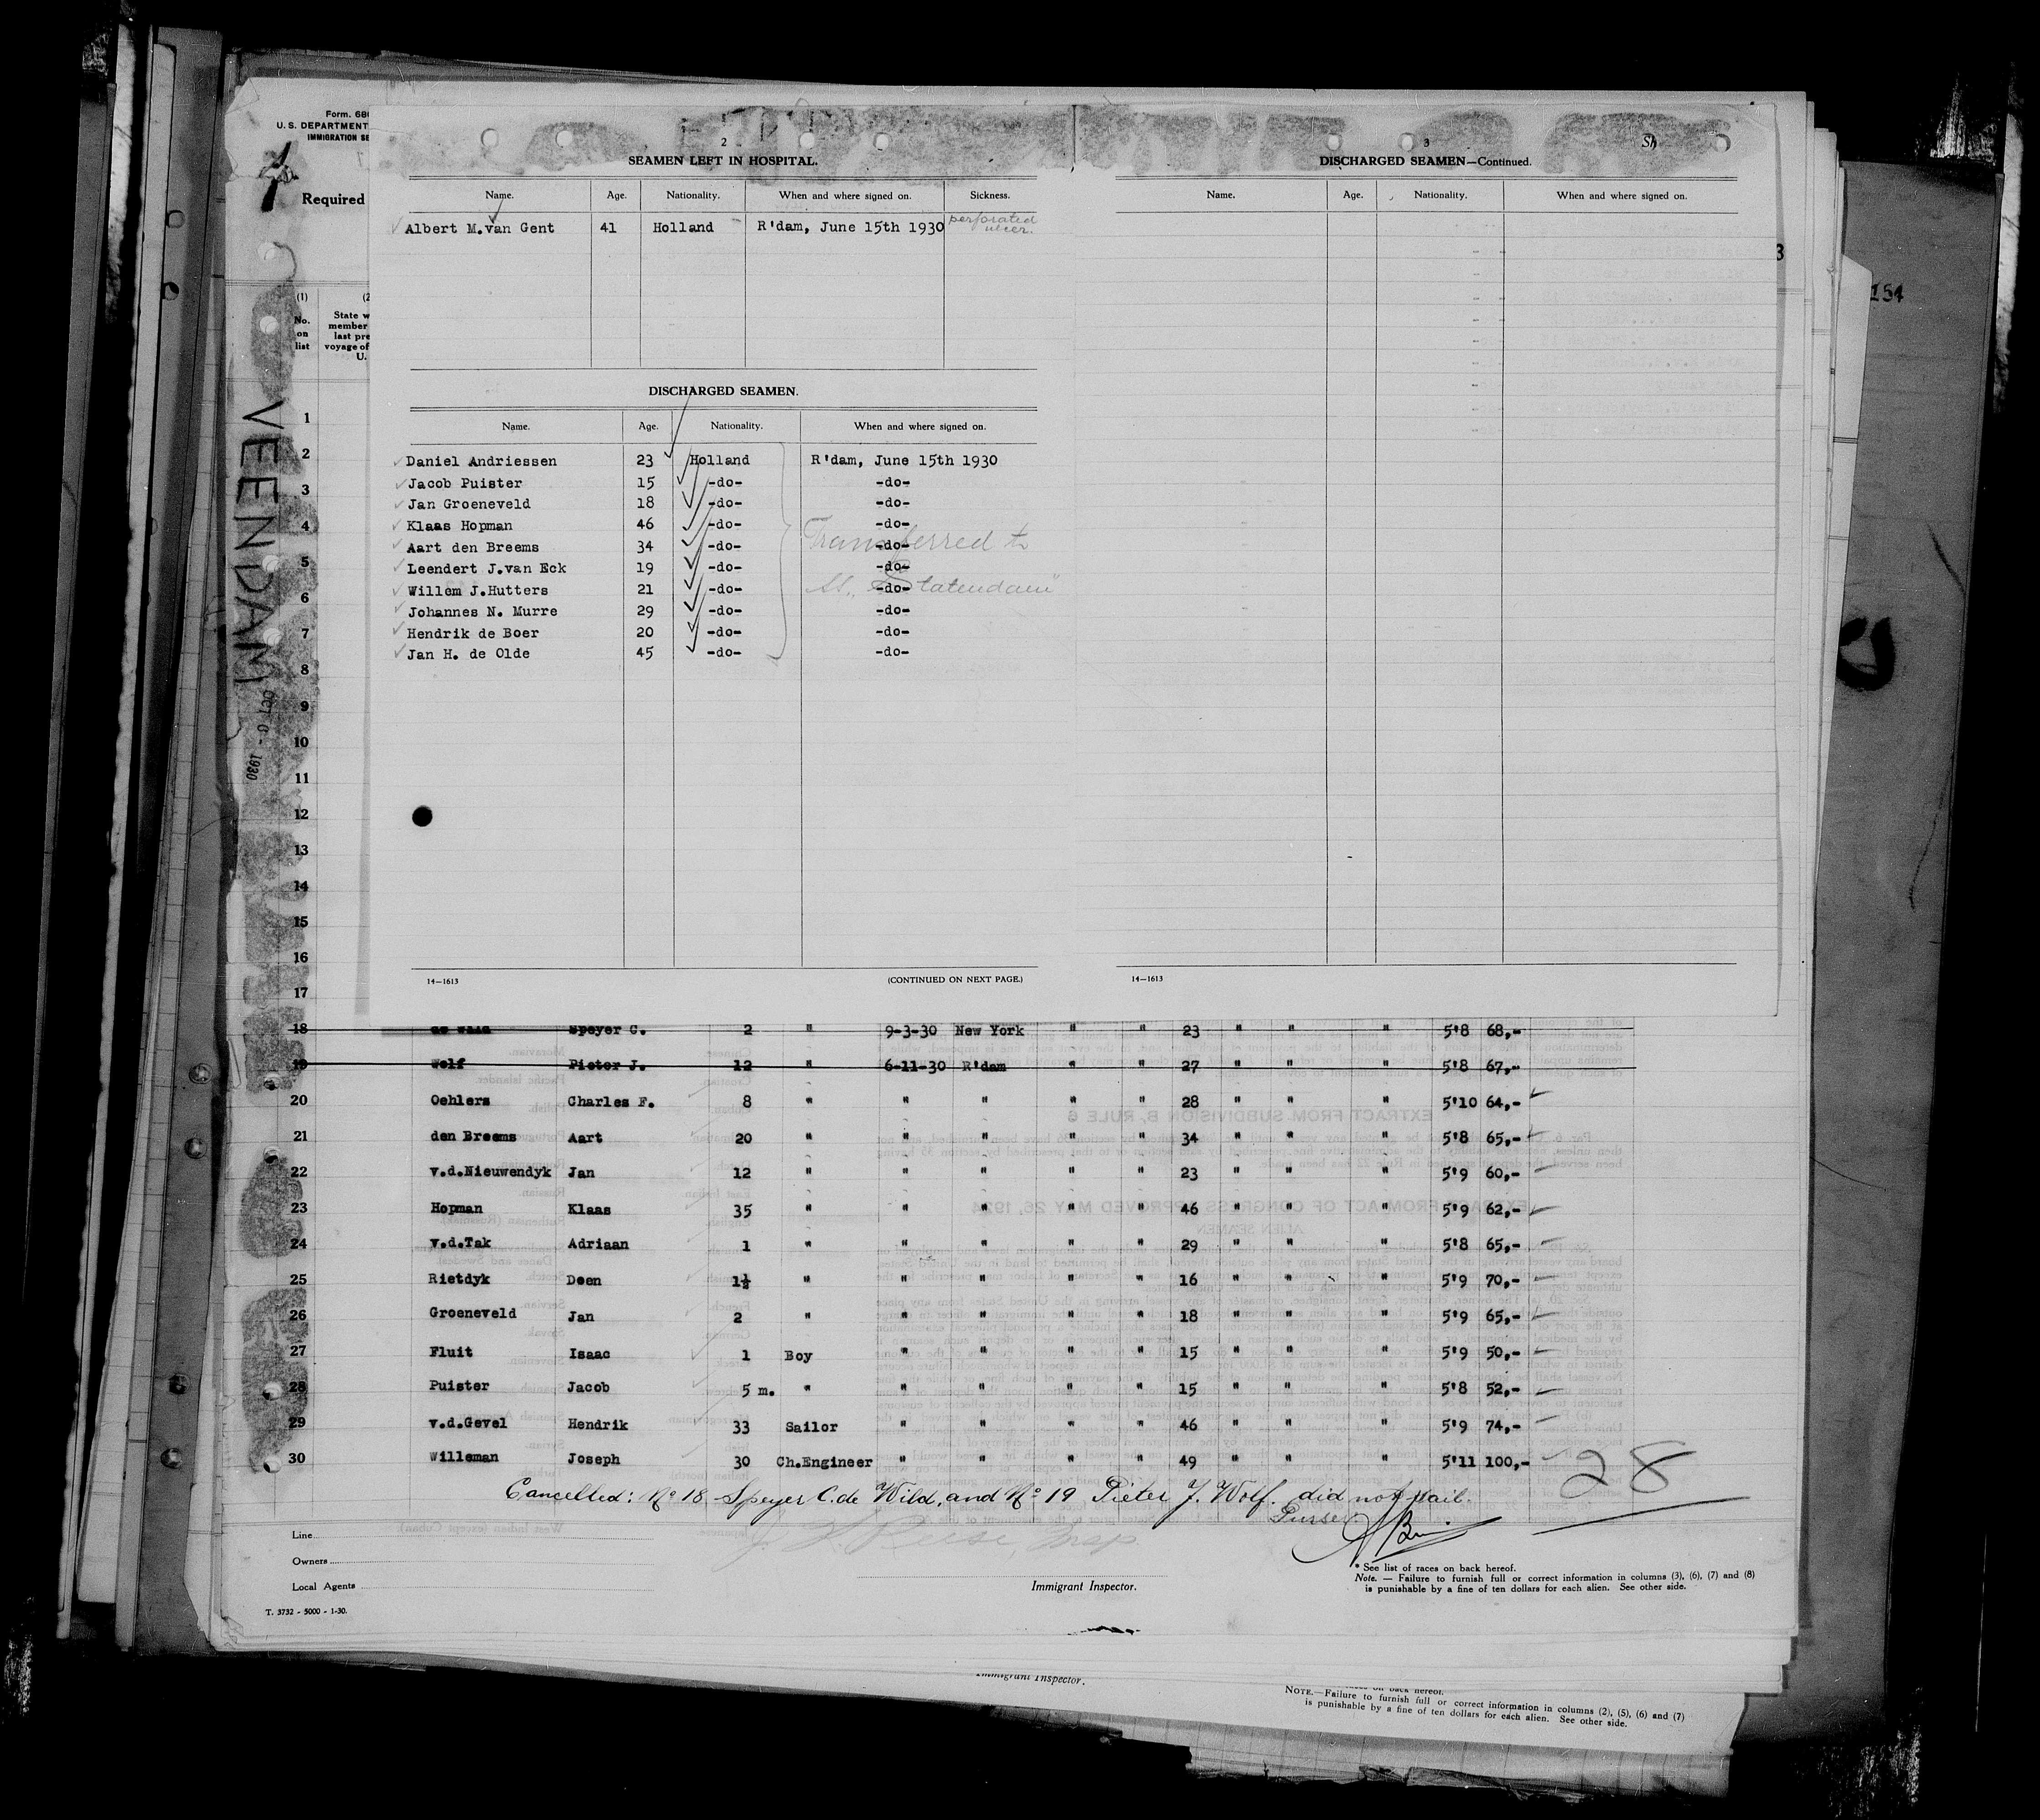 Form. 68
U. S. DEPARTMENT
IMMIGRATION SE
Required
(1)
No.
on
list
State w
member
last pre
voyage of
U.
VEENDAM
1930
2
SEAMEN LEFT IN HOSPITAL.
Name. Age. Nationality. When and where signed on. Sickness.
Albert M.van Gent 41 Holland R'dam, June 15th 1930 perforated
ulcer.
DISCHARGED SEAMEN.
Name. Age. Nationality. When and where signed on.
Daniel Andriessen 23 Holland R'dam, June 15th 1930
Jacob Puister 15 -do- -do-
Jan Groeneveld 18 -do- -do-
Klaas Hopman 46 -do- -do-
Aart den Breems 34 -do- -do-
Transferred to
Leendert J.van Eck 19 -do- -do-
Willem J.Hutters 21 -do- -do-
SS. "Statendam"
Johannes N. Murre 29 -do- -do-
Hendrik de Boer 20 -do- -do-
Jan H. de Olde 45 -do- -do-
14—1613 (CONTINUED ON NEXT PAGE.)
3
Sh
DISCHARGED SEAMEN—Continued.
Name. Age. Nationality. When and where signed on.
14—1613
3
154
1
2
3
4
5
6
7
8
9
10
11
12
13
14
15
16
17
18 de Wild Speyer C. 2 " 9-3-30 New York " " 23 " " " 5'8 68,-
19 Wolf Pieter J. 12 " 6-11-30 R'dam " " 27 " " " 5'8 67,-
20 Oehlers Charles F. 8 " " " " " 28 " " " 5'10 64,-
21 den Breems Aart 20 " " " " " 34 " " " 5'8 65,-
22 v.d.Nieuwendyk Jan 12 " " " " " 23 " " " 5'9 60,-
23 Hopman Klaas 35 " " " " " 46 " " " 5'9 62,-
24 v.d.Tak Adriaan 1 " " " " " 29 " " " 5'8 65,-
25 Rietdyk Deen 1½ " " " " " 16 " " " 5'9 70,-
26 Groeneveld Jan 2 " " " " " 18 " " " 5'9 65,-
27 Fluit Isaac 1 Boy " " " " 15 " " " 5'9 50,-
28 Puister Jacob 5 m. " " " " " 15 " " " 5'8 52,-
29 v.d.Gevel Hendrik 33 Sailor " " " " 46 " " " 5'9 74,-
30 Willeman Joseph 30 Ch.Engineer " " " " 49 " " " 5'11 100,-
28
Cancelled: No 18 Speyer C. de Wild, and No 19 Pieter J. Wolf. did not sail.
Purser
Line
Owners
Local Agents
Immigrant Inspector.
* See list of races on back hereof.
Note. — Failure to furnish full or correct information in columns (3), (6), (7) and (8)
is punishable by a fine of ten dollars for each alien. See other side.
T. 3732 - 5000 - 1-30.
Immigrant Inspector.
on back hereof.
NOTE.—Failure to furnish full or correct information in columns (2), (5), (6) and (7)
is punishable by a fine of ten dollars for each alien. See other side.